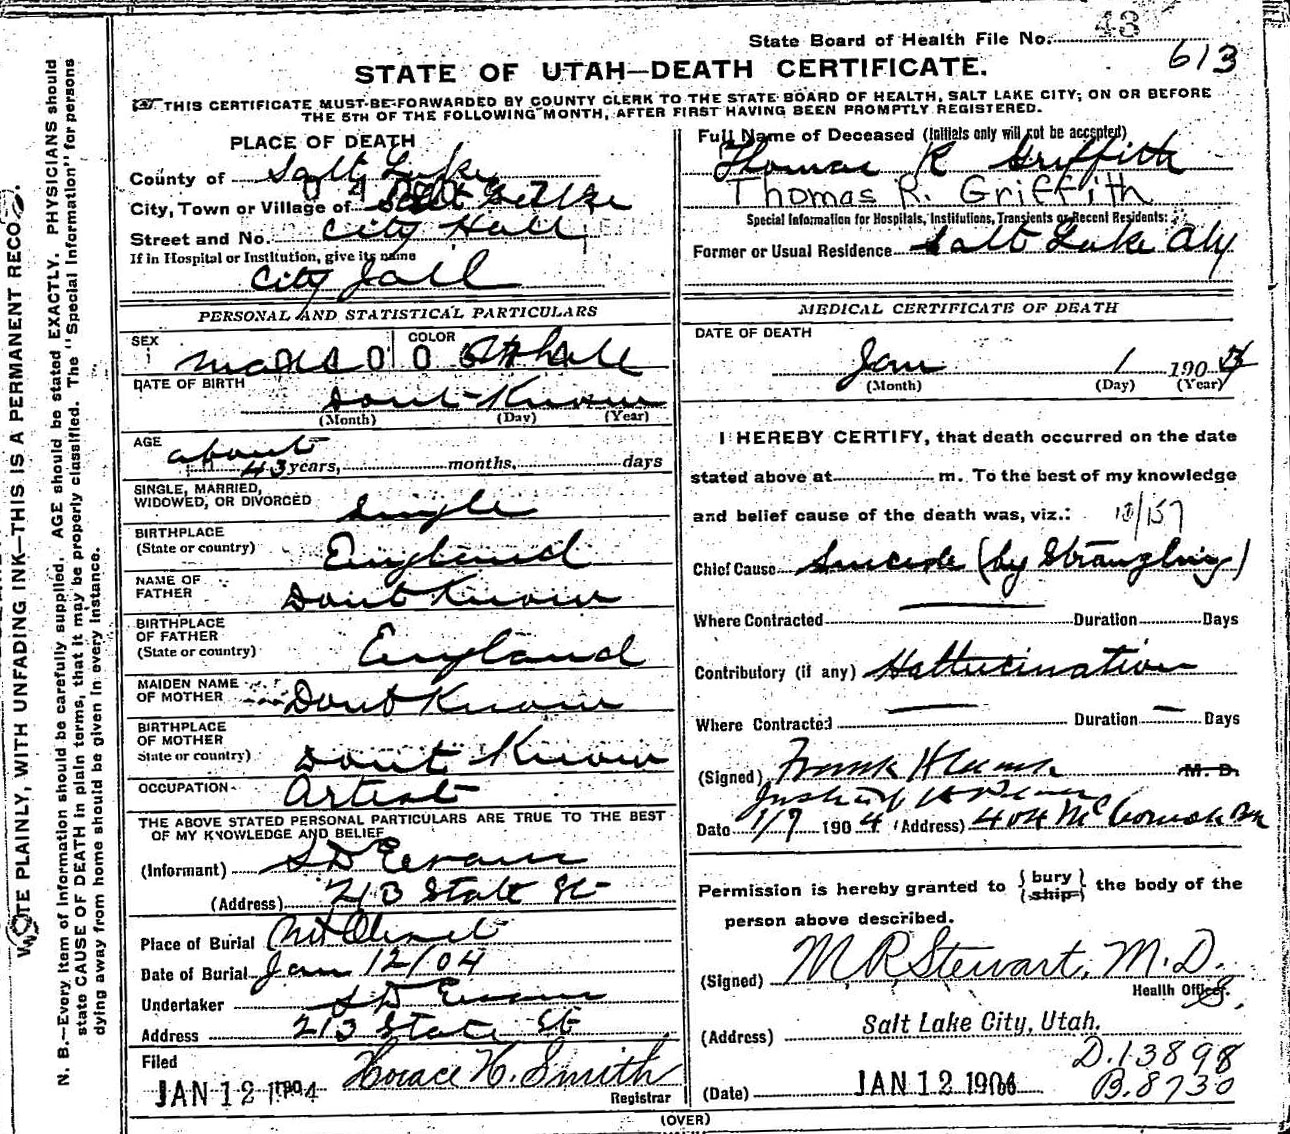 State Board of Health File No. 43
613
STATE OF UTAH—DEATH CERTIFICATE.
THIS CERTIFICATE MUST BE FORWARDED BY COUNTY CLERK TO THE STATE BOARD OF HEALTH, SALT LAKE CITY, ON OR BEFORE
THE 5TH OF THE FOLLOWING MONTH, AFTER FIRST HAVING BEEN PROMPTLY REGISTERED.
WRITE PLAINLY, WITH UNFADING INK—THIS IS A PERMANENT RECORD.
N. B.—Every item of information should be carefully supplied. AGE should be stated EXACTLY. PHYSICIANS should
state CAUSE OF DEATH in plain terms, that it may be properly classified. The "Special Information" for persons
dying away from home should be given in every instance.
PLACE OF DEATH
County of Salt Lake
City, Town or Village of Salt Lake
Street and No. City Hall
If in Hospital or Institution, give its name
City Jall
PERSONAL AND STATISTICAL PARTICULARS
SEX
COLOR
Male
DATE OF BIRTH
Dont Know
(Month) (Day) (Year)
AGE
about
43 years, months, days
SINGLE, MARRIED,
WIDOWED, OR DIVORCED
Single
BIRTHPLACE
(State or country)
England
NAME OF
FATHER
Dont Know
BIRTHPLACE
OF FATHER
(State or country)
England
MAIDEN NAME
OF MOTHER
Dont Know
BIRTHPLACE
OF MOTHER
State or country)
Dont Know
OCCUPATION
Artist
THE ABOVE STATED PERSONAL PARTICULARS ARE TRUE TO THE BEST
OF MY KNOWLEDGE AND BELIEF
(Informant) S D Evans
(Address) 213 State St
Place of Burial Mt Olivet
Date of Burial Jan 12/04
Undertaker S D Evans
Address 213 State St
Filed
JAN 12 1904 Horace H. Smith
Registrar
Full Name of Deceased (Initials only will not be accepted)
Thomas R Griffith
Thomas R. Griffith
Special Information for Hospitals, Institutions, Transients or Recent Residents:
Former or Usual Residence Salt Lake City
MEDICAL CERTIFICATE OF DEATH
DATE OF DEATH
Jan 1 1904
(Month) (Day) (Year)
I HEREBY CERTIFY, that death occurred on the date
stated above at m. To the best of my knowledge
and belief cause of the death was, viz.:
Chief Cause Suicide (by Strangling)
Where Contracted Duration Days
Contributory (if any) Hallucination
Where Contracted Duration Days
(Signed) Frank H M. D.
Date 1/7 1904 (Address) 404 McCornick
Permission is hereby granted to { bury / ship } the body of the
person above described.
(Signed) M R Stewart, M.D.
Health Officer.
(Address) Salt Lake City, Utah.
D.13898
(Date) JAN 12 1904 B.8730
(OVER)